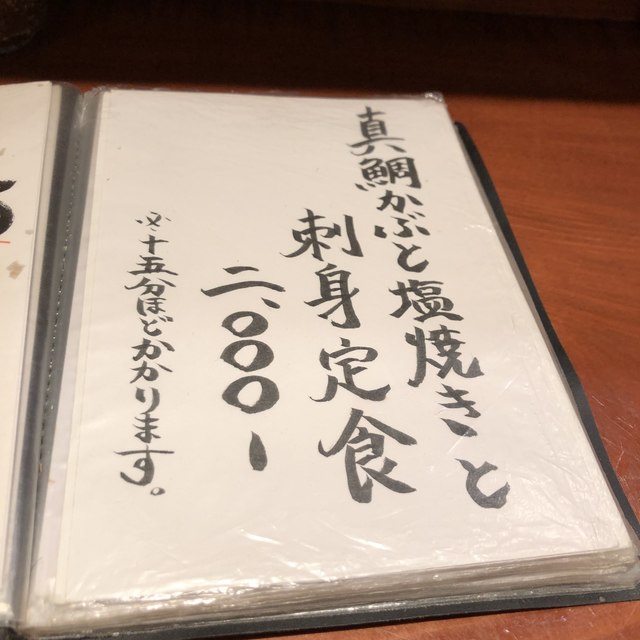 真鯛かぶと塩焼きと
刺身定食
二、〇〇〇ー
※十五分ほどかかります。